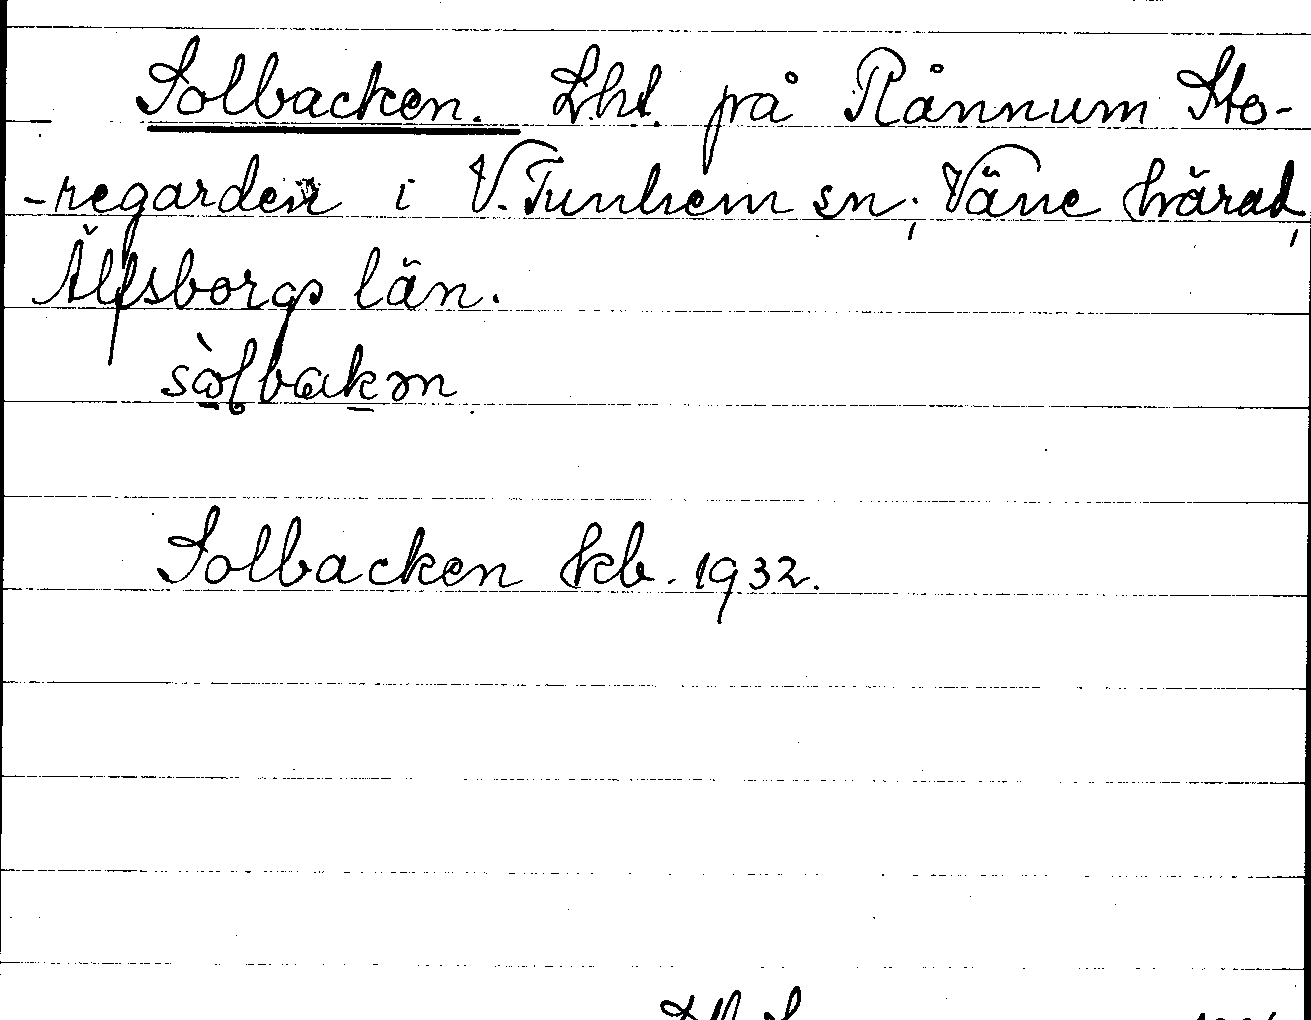 Solbacken. Lht. på Rånnum Sto-
-regarden i V. Tunhem sn; Väne härad,
Älfsborgs län.
sòlbakən
Solbacken kb. 1932.